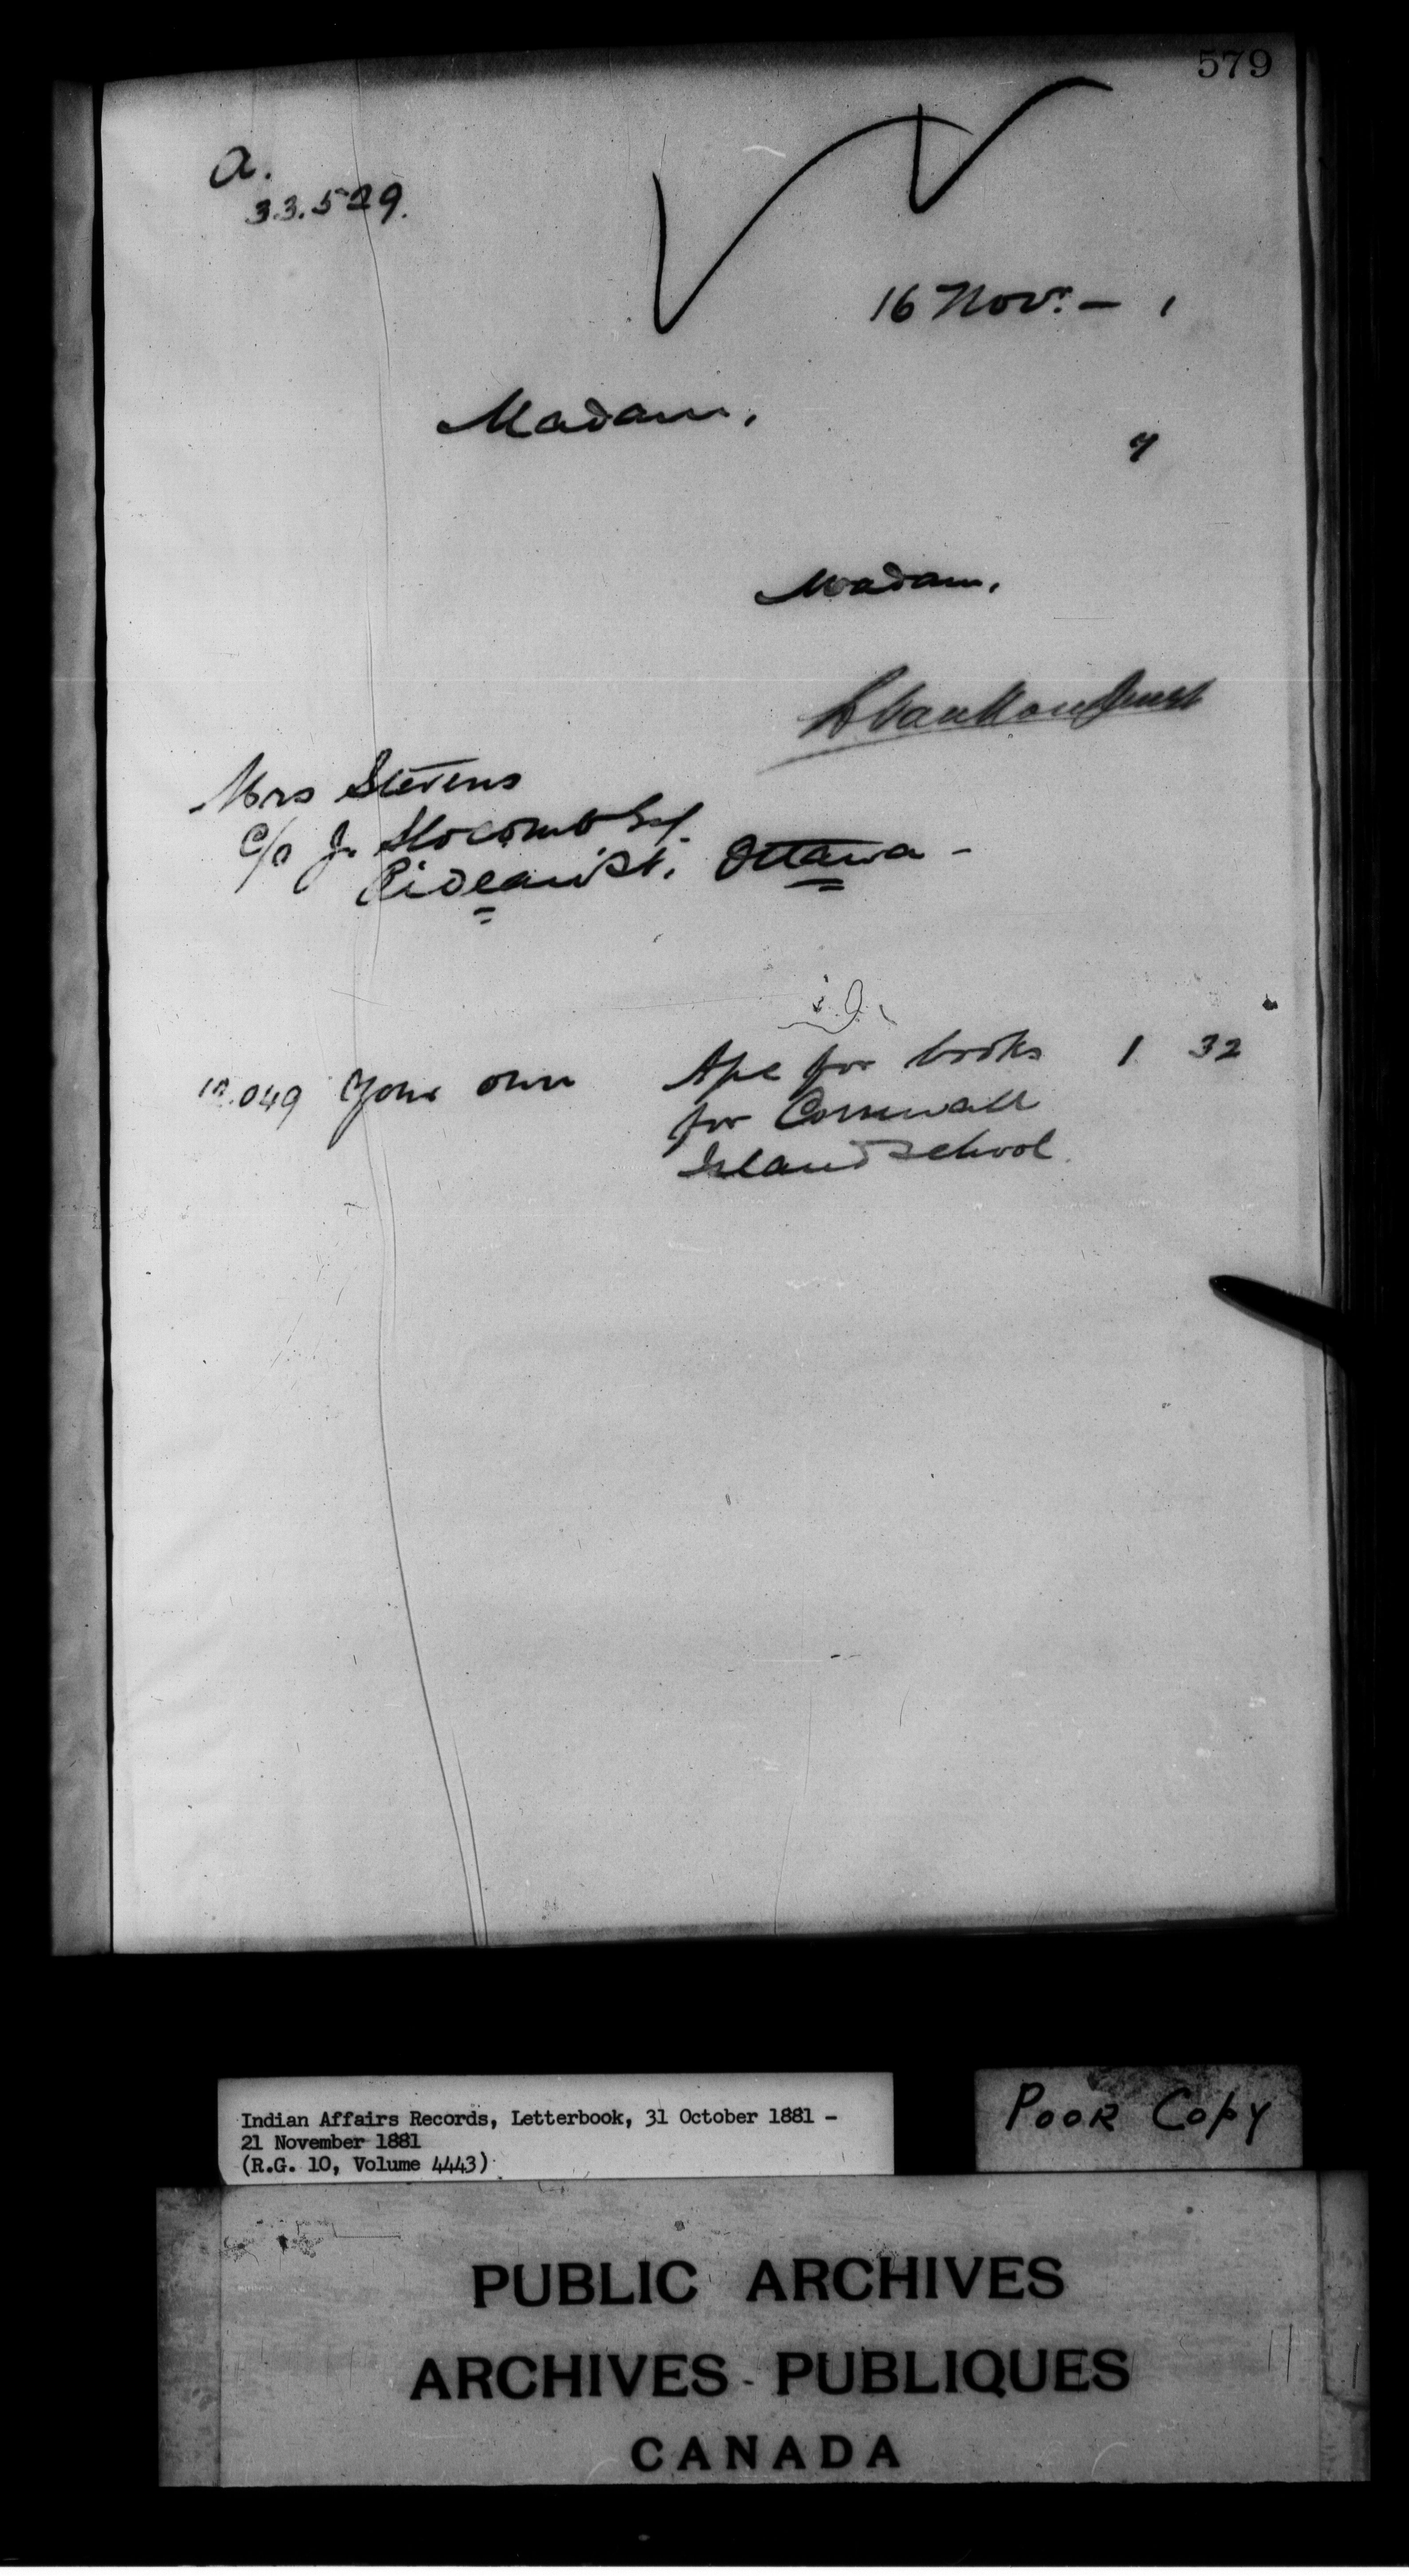 579
a.
33.529.
16 Novr. — 1
Madam,
y
Madam,
L Vankoughnet
Mrs Stevens
c/o J. Slocomb Esq.
Rideau St. Ottawa -
049 Your own Apc for books 1 32
for Cornwall
Island School.
Indian Affairs Records, Letterbook, 31 October 1881 -
21 November 1881
(R.G. 10, Volume 4443)
POOR COPY
PUBLIC ARCHIVES
ARCHIVES - PUBLIQUES
CANADA